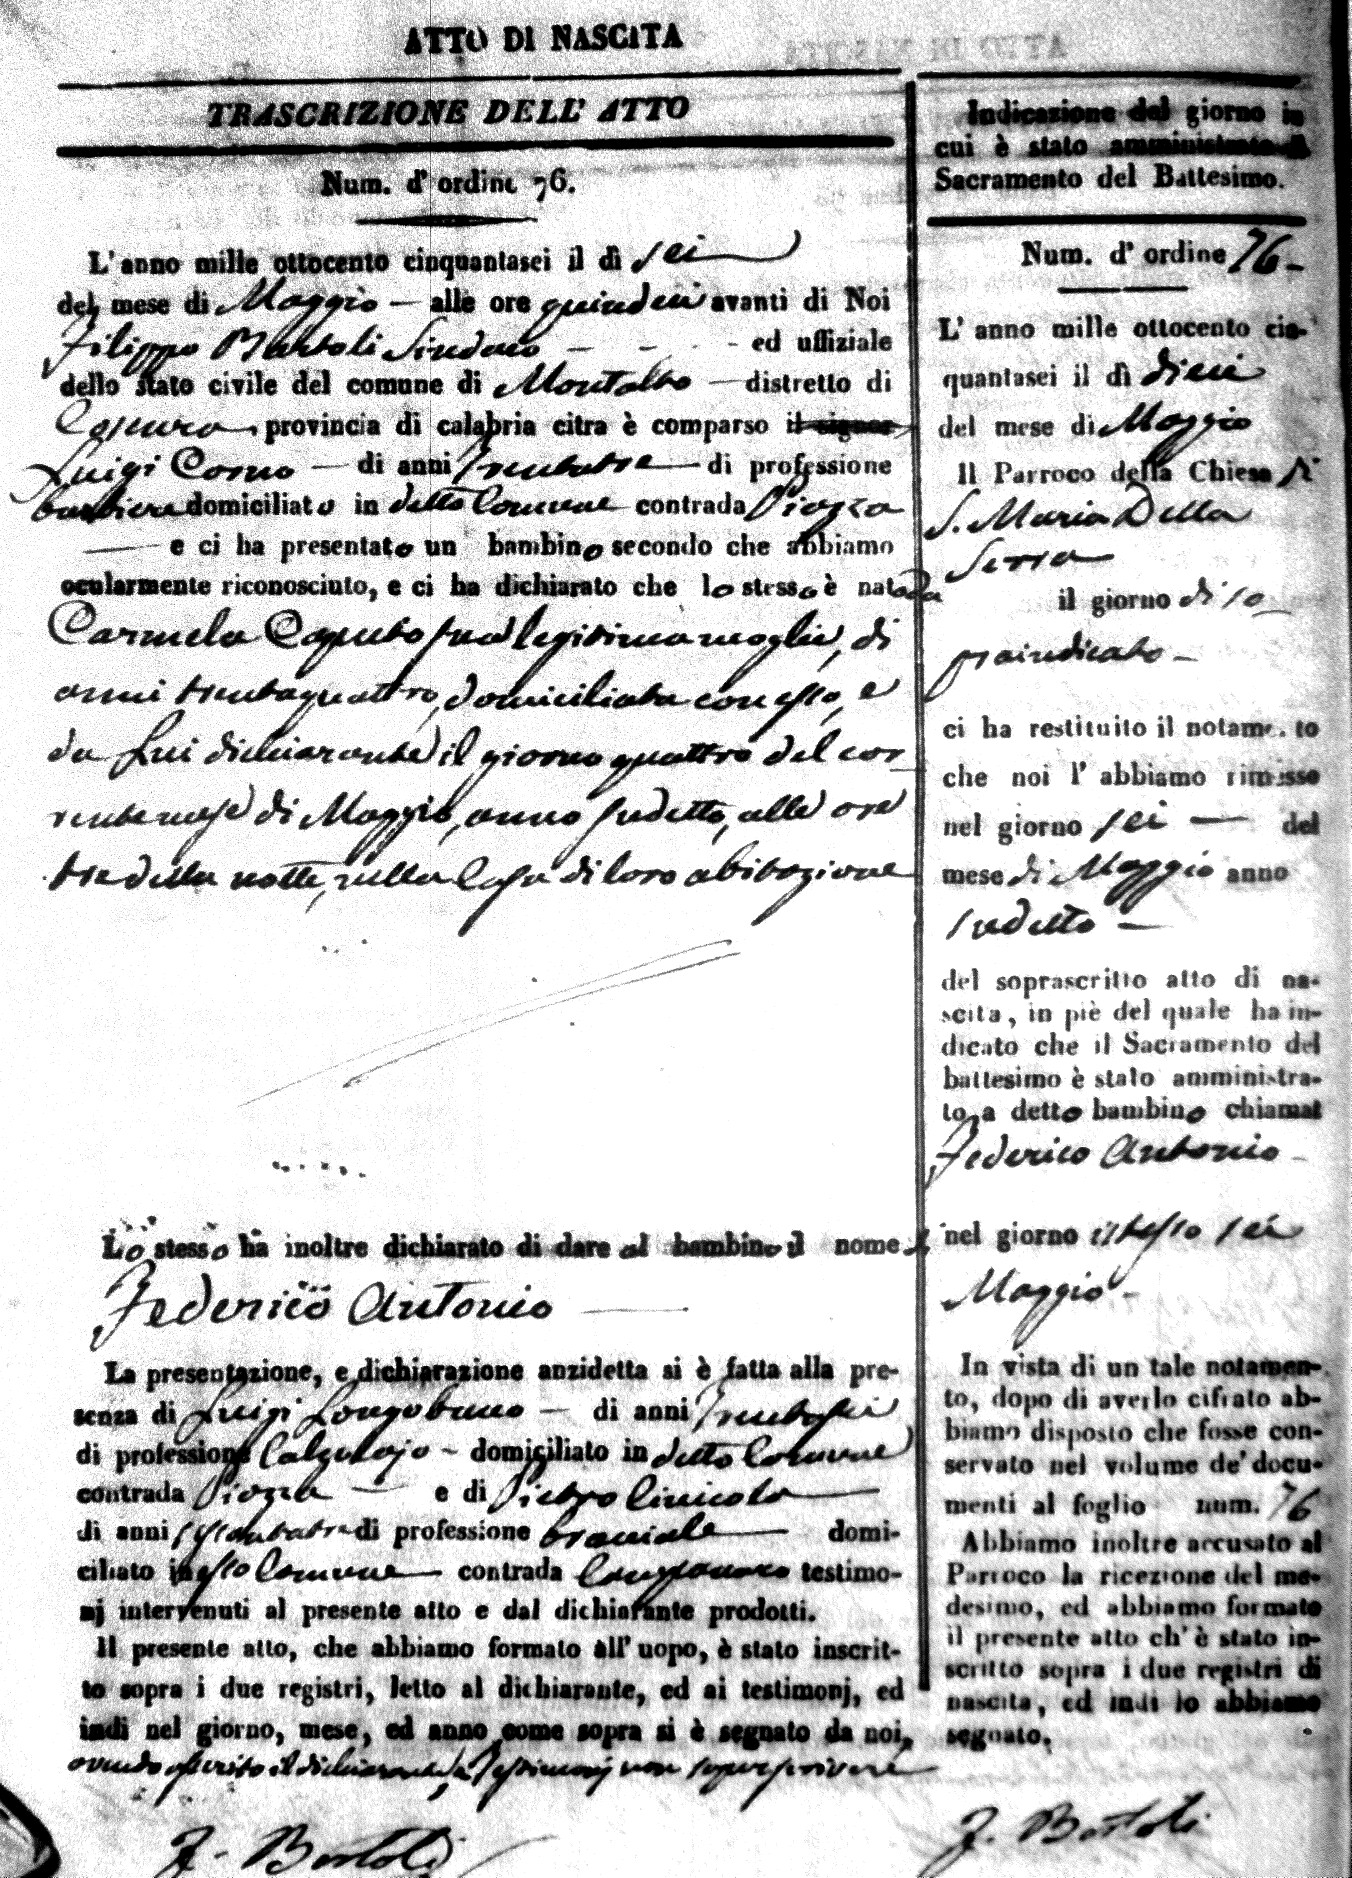 ATTO DI NASCITA
TRASCRIZIONE DELL' ATTO
Num. d' ordine 76.
L' anno mille ottocento cinquantasei il dì sei
del mese di Maggio — alle ore quindici avanti di Noi
Filippo Bartoli Sindaco — ed uffiziale
dello stato civile del comune di Montalto — distretto di
Cosenza provincia di calabria citra è comparso il signor
Luigi Corno — di anni Trentatre — di professione
barbiere domiciliato in detto Comune contrada Piazza
— e ci ha presentato un bambino secondo che abbiamo
ocularmente riconosciuto, e ci ha dichiarato che lo stesso è nato da
Carmela Caputo sua legitima moglie, di
anni trentaquattro, domiciliata con esso, e
da Lui dichiarante il giorno quattro del cor
rente mese di Maggio, anno sudetto, alle ore
tre della notte, nella Casa di loro abitazione
Lo stesso ha inoltre dichiarato di dare al bambino il nome di
Federico Antonio
La presentazione, e dichiarazione anzidetta si è fatta alla pre-
senza di Luigi Longobuco — di anni Trentasei
di professione Calzolajo — domiciliato in detto Comune
contrada Piazza — e di Pietro
di anni sessantatre di professione bracciale — domi-
ciliato in esso Comune contrada testimo-
nj intervenuti al presente atto e dal dichiarante prodotti.
Il presente atto, che abbiamo formato all' uopo, è stato inscrit-
to sopra i due registri, letto al dichiarante, ed ai testimonj, ed
indi nel giorno, mese, ed anno come sopra si è segnato da noi,
avendo asserito il dichiarante, e Testimonj non saper scrivere
F. Bartoli
Indicazione del giorno in
cui è stato amministrato il
Sacramento del Battesimo.
Num. d' ordine 76 -
L' anno mille ottocento cin-
quantasei il dì dieci
del mese di Maggio
Il Parroco della Chiesa di
S. Maria Della
Serra
il giorno di so
praindicato -
ci ha restituito il notamento
che noi l' abbiamo rimesso
nel giorno sei — del
mese di Maggio anno
sudetto —
del soprascritto atto di na-
scita, in piè del quale ha in-
dicato che il Sacramento del
battesimo è stato amministra-
to a detto bambino chiamat
Federico Antonio -
nel giorno istesso sei
Maggio -
In vista di un tale notamen-
to, dopo di averlo cifrato ab-
biamo disposto che fosse con-
servato nel volume de' docu-
menti al foglio num. 76
Abbiamo inoltre accusato al
Parroco la ricezione del me-
desimo, ed abbiamo formato
il presente atto ch' è stato in-
scritto sopra i due registri di
nascita, ed indi lo abbiamo
segnato.
F. Bartoli